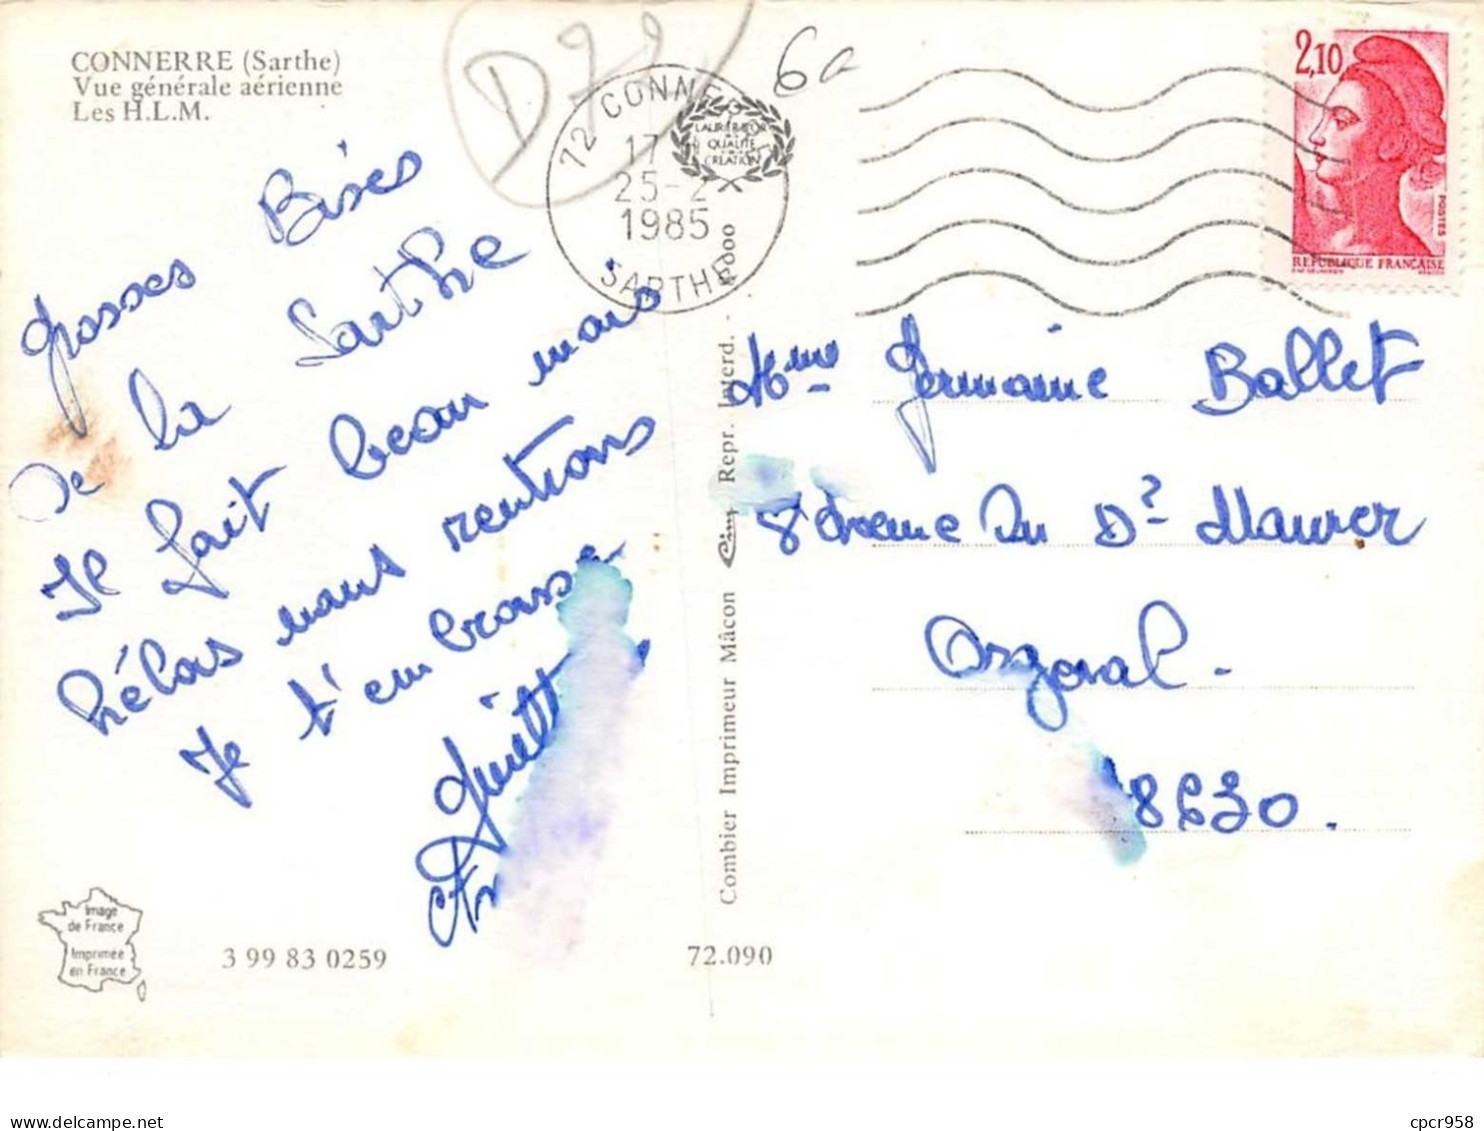 CONNERRE (Sarthe)
Vue générale aérienne
Les H.L.M.
D72
6a
72 CONNERRE
17
25-2
1985
SARTHE
LAURÉAT
QUALITÉ
CRÉATION
2,10
POSTES
REPUBLIQUE FRANÇAISE
Grosses Bises
de la Sarthe
Il fait beau mais
hélas nous rentrons
Je t'embrasse
Mme Germaine Ballet
8 chemin du Dr Maurer
Orgeval.
78630.
Combier Imprimeur Mâcon Cim Repr. Interd.
Image
de France
Imprimée
en France
3 99 83 0259
72.090
cpcr958